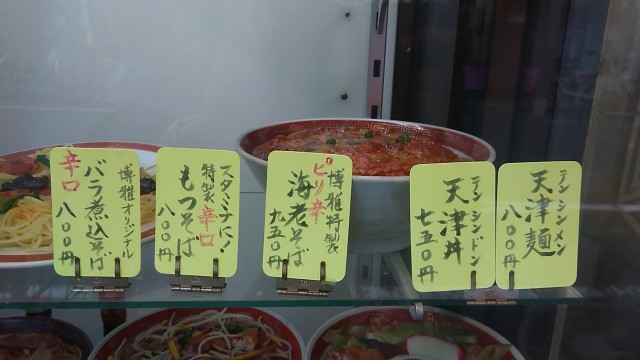 博雅オリジナル
辛口
バラ煮込そば
八〇〇円
スタミナに!
特製辛口
もつそば
八〇〇円
博雅特製
ピリ辛
海老そば
九五〇円
テンシンドン
天津丼
七五〇円
テンシンメン
天津麺
八〇〇円